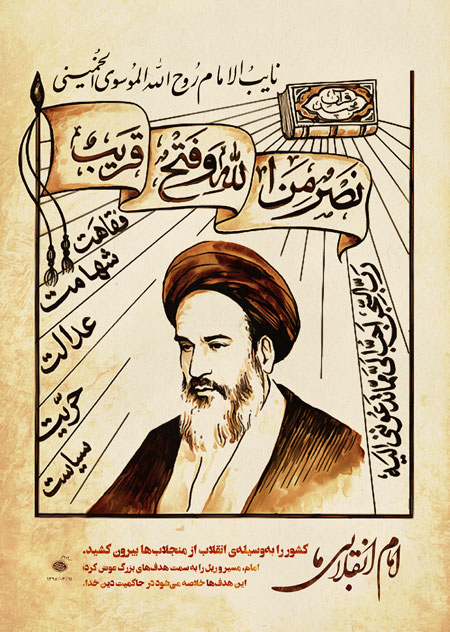 نایب الامام روح الله الموسوی الخمینی
قرآن مجید
نصر من الله و فتح قریب
فقاهت
شهامت
عدالت
حریّت
سیاست
رب السجن احب الی مما یدعوننی الیه
امام انقلابی ما
کشور را به‌وسیله‌ی انقلاب از منجلاب‌ها بیرون کشید.
امام، مسیر و ریل را به سمت هدف‌های بزرگ عوض کرد؛
این هدف‌ها خلاصه می‌شود در حاکمیت دین خدا.